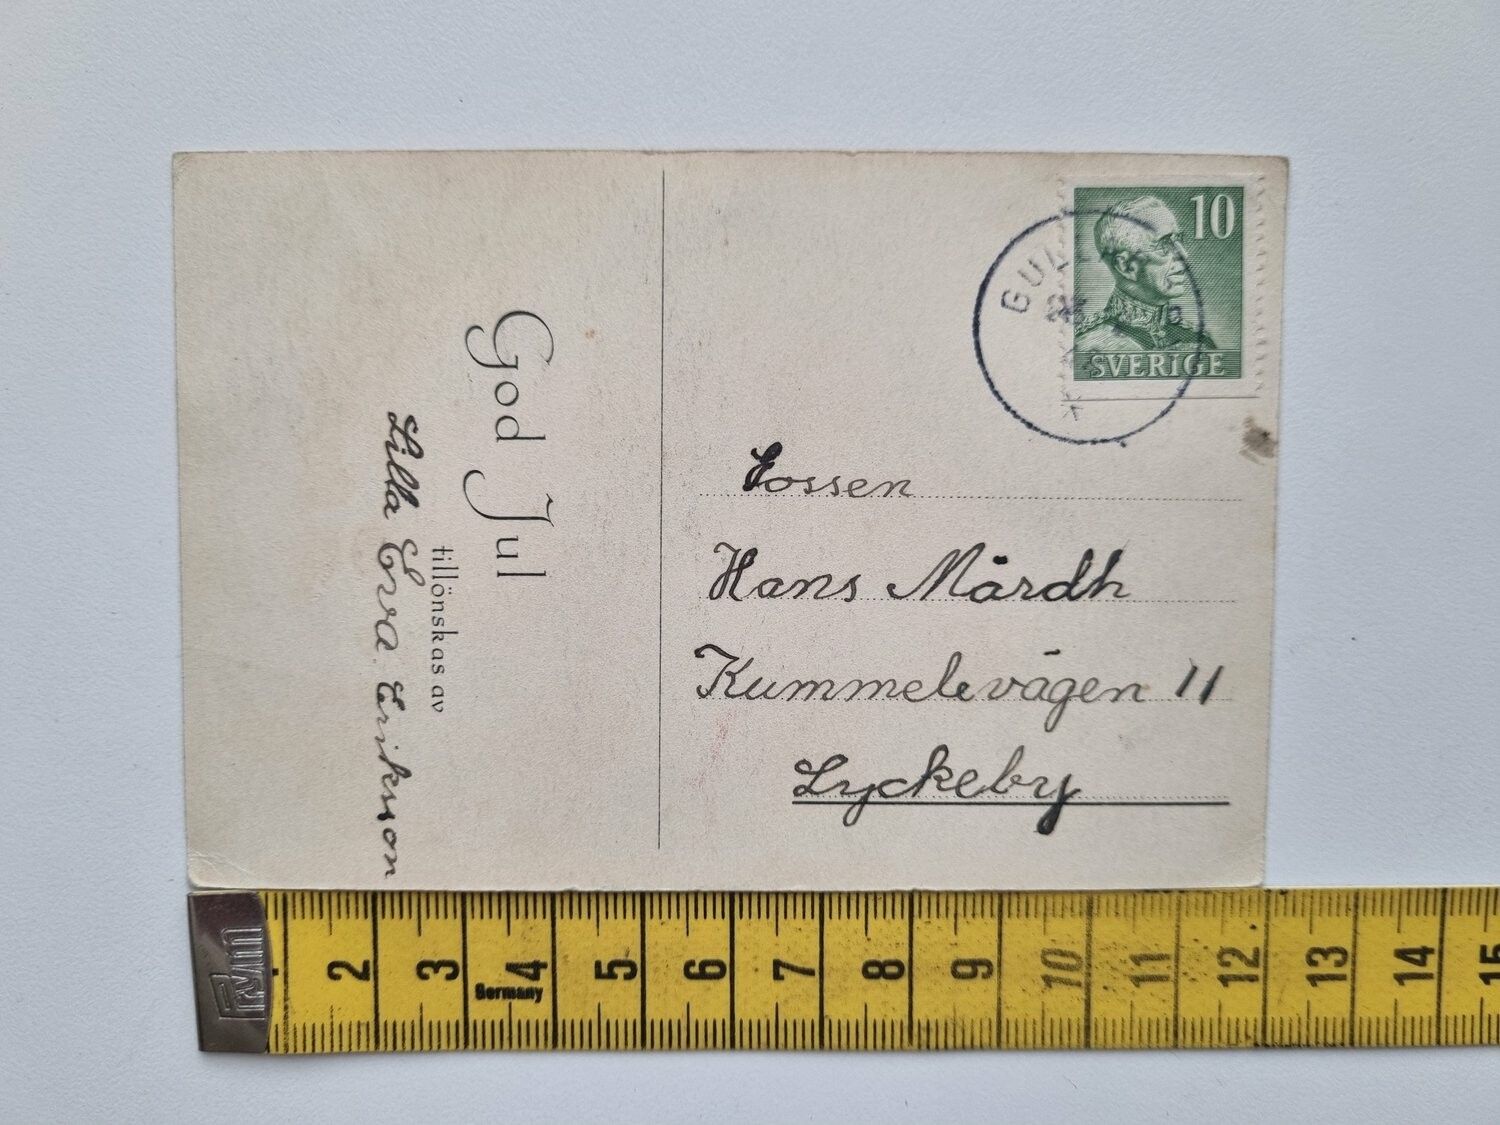 God Jul
tillönskas av
Lilla Eva Eriksson
10
SVERIGE
Gossen
Hans Mårdh
Kummelevägen 11
Lyckeby
Prym
2 3 4 5 6 7 8 9 10 11 12 13 14 15
Germany